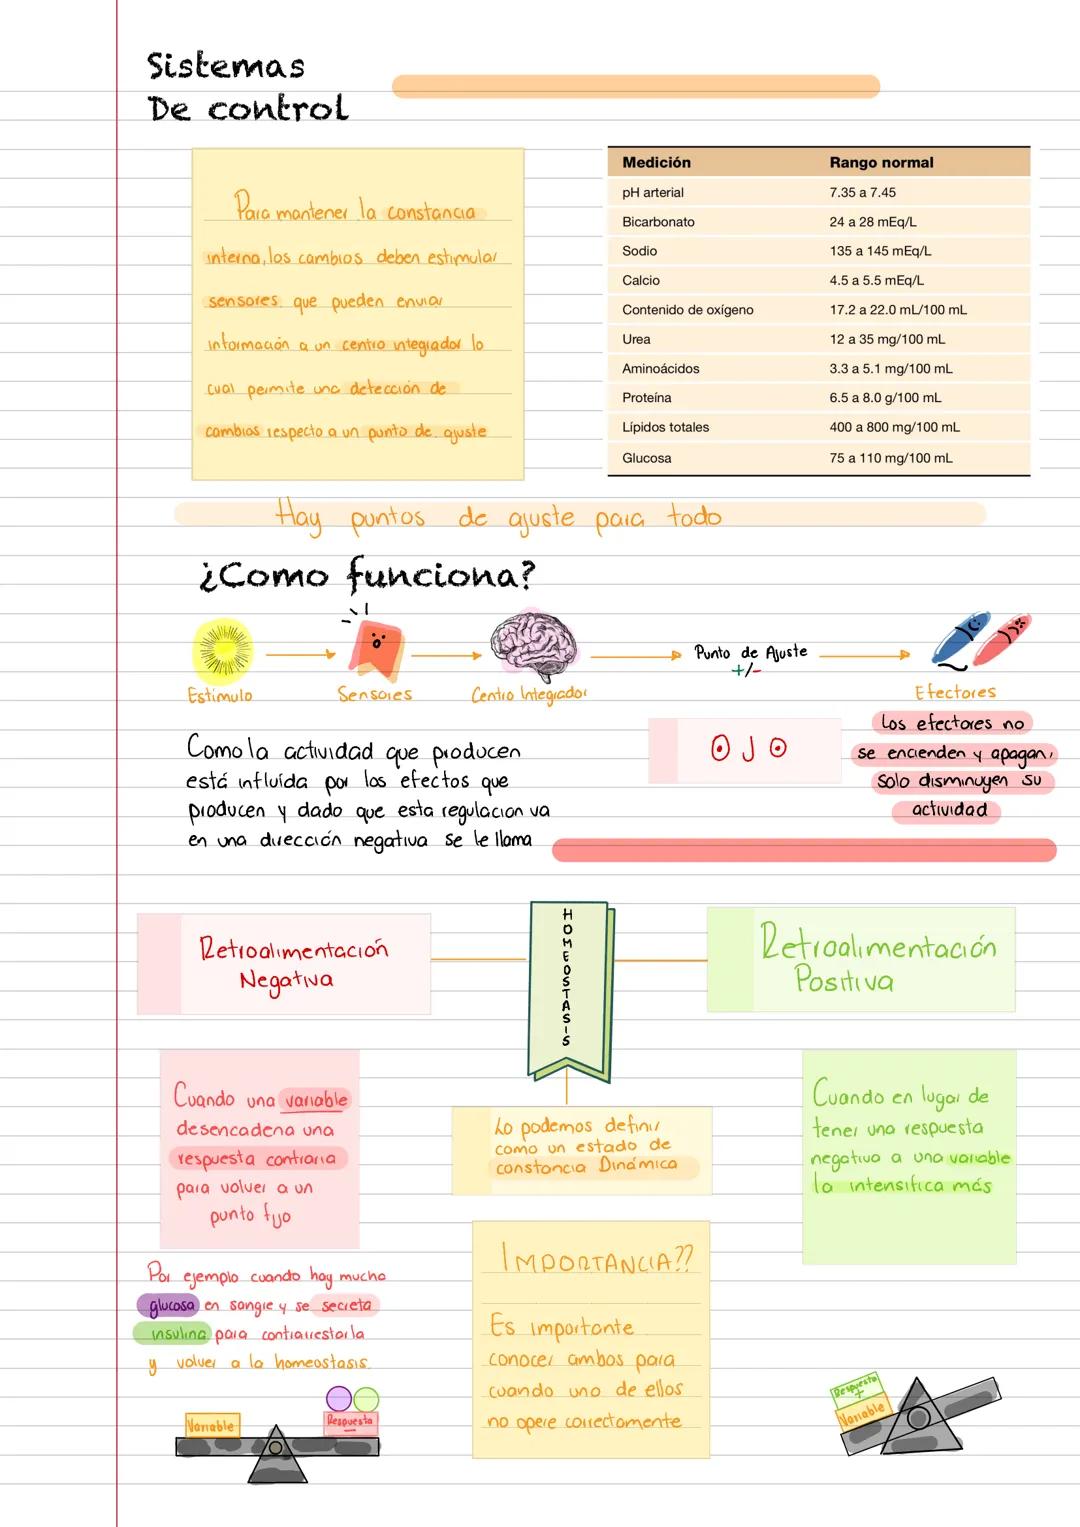 Sistemas
De control
Para mantener la constancia
interna, los cambios deben estimular
sensores que pueden enviar
información a un centro integrador lo
cual permite una detección de
cambios respecto a un punto de ajuste
Medición Rango normal
pH arterial 7.35 a 7.45
Bicarbonato 24 a 28 mEq/L
Sodio 135 a 145 mEq/L
Calcio 4.5 a 5.5 mEq/L
Contenido de oxígeno 17.2 a 22.0 mL/100 mL
Urea 12 a 35 mg/100 mL
Aminoácidos 3.3 a 5.1 mg/100 mL
Proteína 6.5 a 8.0 g/100 mL
Lípidos totales 400 a 800 mg/100 mL
Glucosa 75 a 110 mg/100 mL
Hay puntos de ajuste para todo
¿Como funciona?
Estímulo
Sensores
Centro Integrador
Punto de Ajuste
+/-
Efectores
Como la actividad que producen
está influida por los efectos que
producen y dado que esta regulacion va
en una dirección negativa se le llama
OJO
Los efectores no
se encienden y apagan,
solo disminuyen su
actividad
Retroalimentación
Negativa
HOMEOSTASIS
Retroalimentación
Positiva
Cuando una variable
desencadena una
respuesta contraria
para volver a un
punto fijo
Lo podemos definir
como un estado de
constancia Dinámica
Cuando en lugar de
tener una respuesta
negativa a una variable
la intensifica más
Por ejemplo cuando hay mucha
glucosa en sangre y se secreta
insulina para contrarrestarla
y volver a la homeostasis.
IMPORTANCIA??
Es importante
conocer ambos para
cuando uno de ellos
no opere correctamente
Variable
Respuesta
-
Respuesta
+
Variable